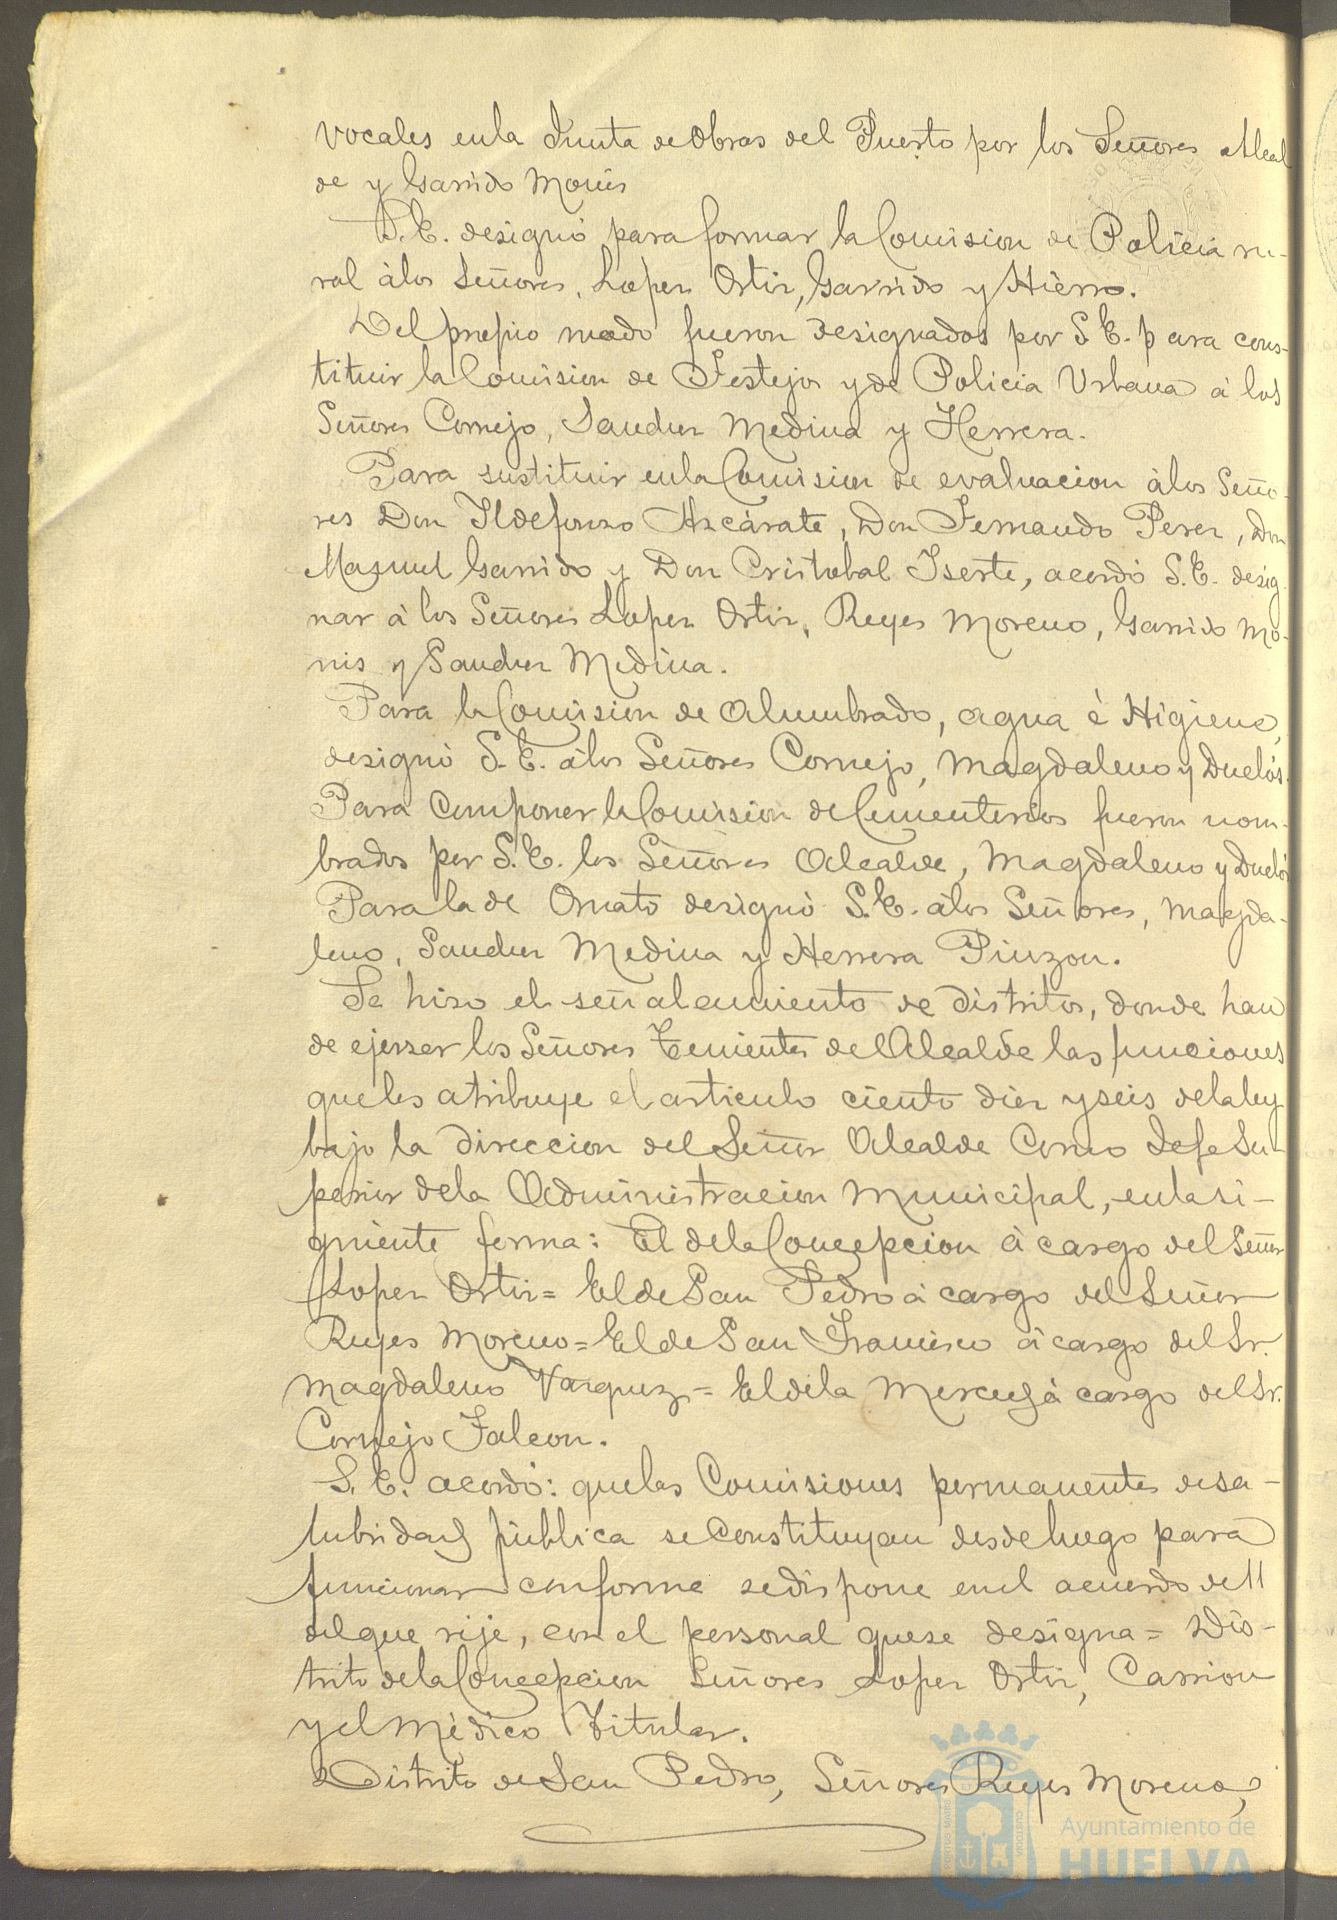 vocales en la Junta de Obras del Puerto por los Señores Alcal
de y Garrido Monís
S. E. designó para formar la Comision de Policia ru-
ral á los Señores, Lopez Ortiz, Garrido y Hierro.
Del propio modo fueron designados por S E. para cons-
tituir la Comision de Festejos y de Policia Urbana á los
Señores Cornejo, Sanchez Medina y Herrera.
Para sustituir en la Comision de evaluacion á los Seño-
res Don Ildefonso Azcárate, Don Fernando Perez, Don
Manuel Garrido y Don Cristobal Iserte, acordó S. E. desig-
nar á los Señores Lopez Ortiz, Reyes Moreno, Garrido Mo-
nis y Sanchez Medina.
Para la Comision de Alumbrado, agua é Higiene,
designó S. E. á los Señores Cornejo, Magdaleno y Duelós.
Para componer la Comision de Cementerios fueron nom-
brados por S. E. los Señores Alcalde, Magdaleno y Duelós
Para la de Ornato designó S. E. á los Señores, Magda-
leno, Sanchez Medina y Herrera Pinzon.
Se hizo el señalamiento de distritos, donde han
de ejerser los Señores Tenientes de Alcalde las funciones
que les atribuye el articulo ciento diez y seis de la ley
bajo la direccion del Señor Alcalde Como Jefe Su-
perior de la Administracion Municipal, en la si-
guiente forma: El de la Concepcion á cargo del Señor
Lopez Ortiz = El de San Pedro á cargo del Señor
Reyes Moreno = El de San Francisco á cargo del Sr.
Magdaleno Vazquez = El de la Merced á cargo del Sr.
Cornejo Falcon.
S. E. acordó: que las Comisiones permanentes de sa-
lubridad pública se Constituyan desde luego para
funcionar conforme se dispone en el acuerdo de 11
del que rije, con el personal que se designa = Dis-
trito de la Concepcion Señores Lopez Ortiz, Carrion
y el Médico Titular.
Distrito de San Pedro, Señores Reyes Moreno,
Ayuntamiento de
HUELVA